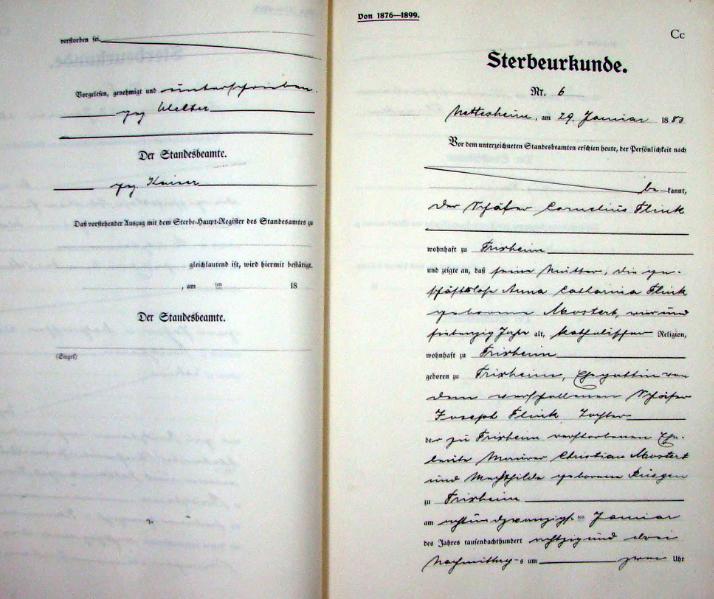 verstorben sei
Vorgelesen, genehmigt und unterschrieben.
gez Welter
Der Standesbeamte.
gez Kaiser
Daß vorstehender Auszug mit dem Sterbe-Haupt-Register des Standesamtes zu
gleichlautend ist, wird hiermit bestätigt.
, am ten 18
Der Standesbeamte.
(Siegel)
Von 1876—1899.
Cc
Sterbeurkunde.
Nr. 6
Nettesheim, am 29. Januar 1883
Vor dem unterzeichneten Standesbeamten erschien heute, der Persönlichkeit nach
be kannt,
der Schäfer Cornelius Flink
wohnhaft zu Frixheim
und zeigte an, daß seine Mutter, die ge-
schäftslose Anna Catharina Flink
geborene Mostert, vier und
siebenzig Jahr alt, katholischer Religion,
wohnhaft zu Frixheim
geboren zu Frixheim, Ehegattin von
dem verstorbenen Schäfer
Joseph Flink Tochter
der zu Frixheim verstorbenen Ehe-
leute Maurer Christian Mostert
und Mechthilde geborene
zu Frixheim
am achtundzwanzigst ten Januar
des Jahres tausendachthundert achtzig und drei
Nachmittags um zwei Uhr